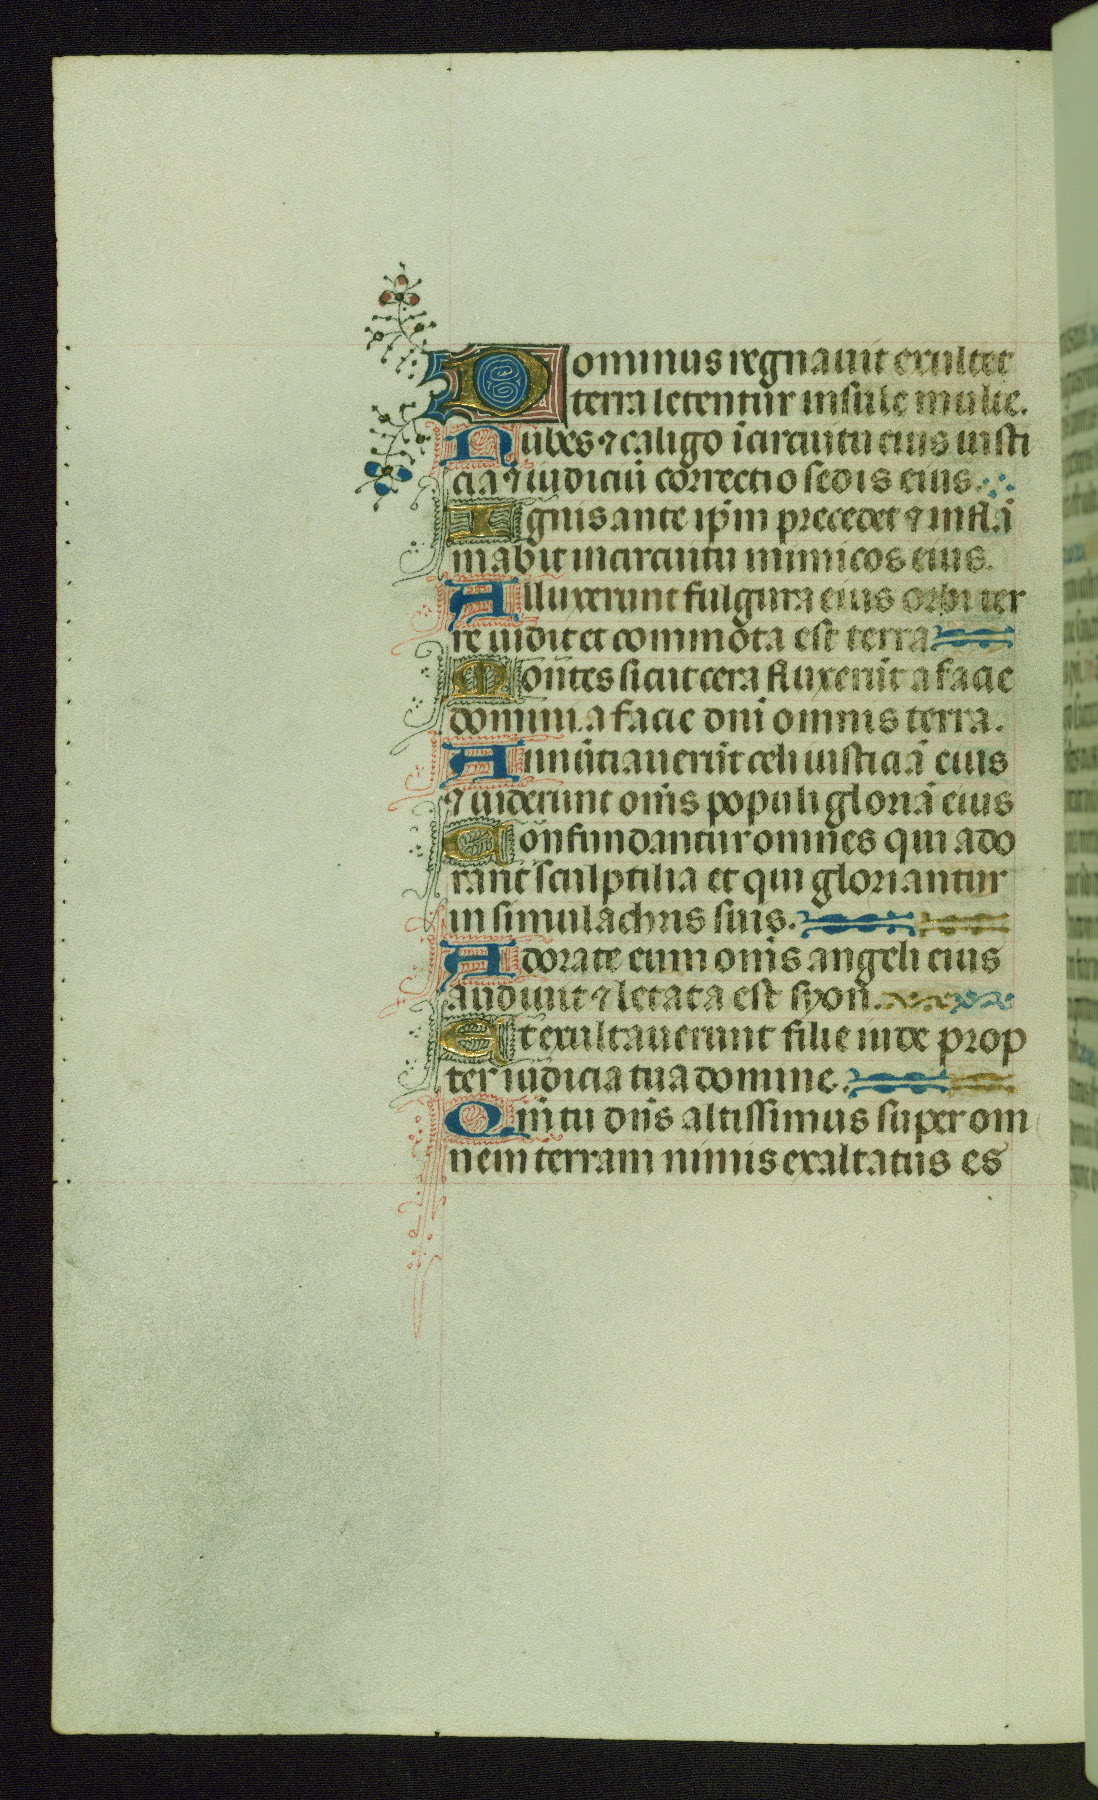 Dominus regnauit exultet
terra letentur insule multe.
Nubes ⁊ caligo ĩ circuitu eius iusti
cia ⁊ iudiciũ correctio sedis eius.
Ignis ante ip̃m precedet ⁊ inflã
mabit in circuitu inimicos eius.
Alluxerunt fulgura eius orbi ter
re uidit et commota est terra
Montes sicut cera fluxerũt a facie
domini. a facie dñi omnis terra.
Annũtiauerũt celi iusticiã eius
⁊ uiderunt om̃s populi gloriã eius
Confundantur omnes qui ado
rant sculptilia et qui gloriantur
in simulachris suis.
Adorate eum om̃s angeli eius
audiuit ⁊ letata est syon.
Et exultauerunt filie iude prop
ter iudicia tua domine.
Qm̃ tu dñs altissimus super om
nem terram nimis exaltatus es